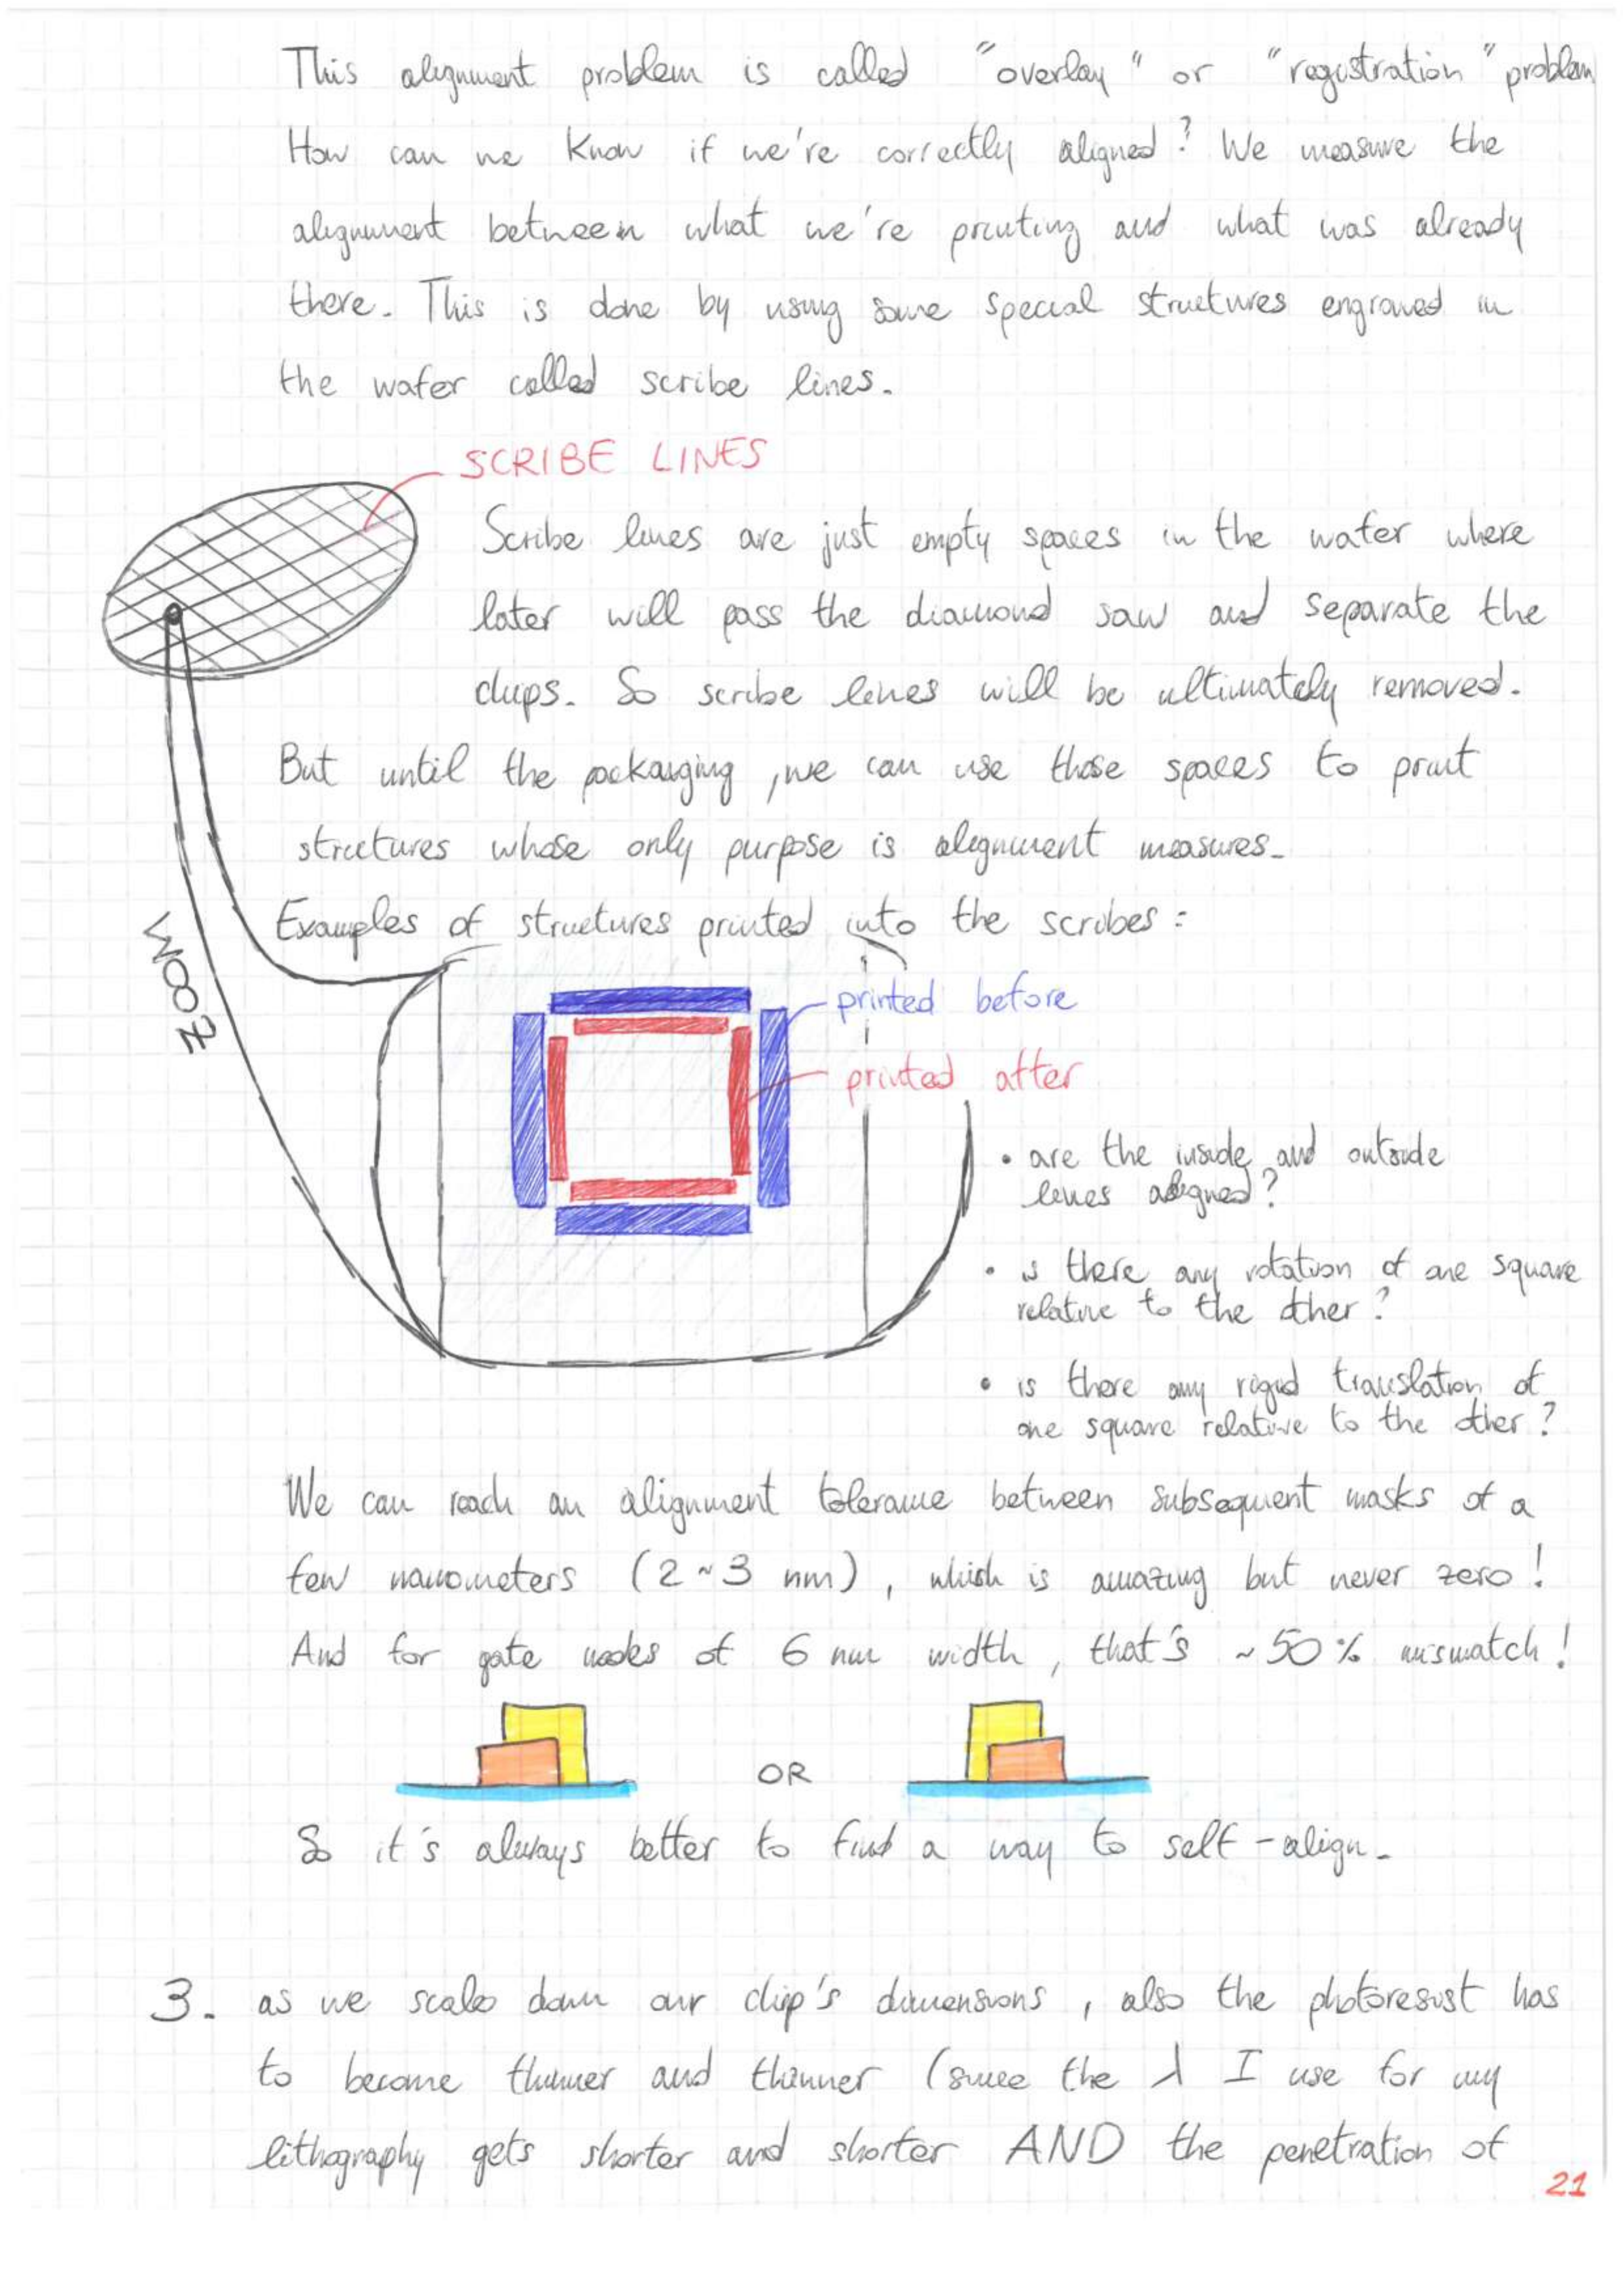 This alignment problem is called "overlay" or "registration" problem
How can we know if we're correctly aligned? We measure the
alignment between what we're printing and what was already
there. This is done by using some special structures engraved in
the wafer called scribe lines.
SCRIBE LINES
Scribe lines are just empty spaces in the wafer where
later will pass the diamond saw and separate the
chips. So scribe lines will be ultimately removed.
But until the packaging, we can use those spaces to print
structures whose only purpose is alignment measures.
Examples of structures printed into the scribes:
ZOOM
printed before
printed after
• are the inside and outside
lines aligned?
• is there any rotation of one square
relative to the other?
• is there any rigid translation of
one square relative to the other?
We can reach an alignment tolerance between subsequent masks of a
few nanometers (2~3 nm), which is amazing but never zero!
And for gate nodes of 6 nm width, that's ~50% mismatch!
OR
So it's always better to find a way to self-align.
3. as we scale down our chip's dimensions, also the photoresist has
to become thinner and thinner (since the λ I use for my
lithography gets shorter and shorter AND the penetration of
21